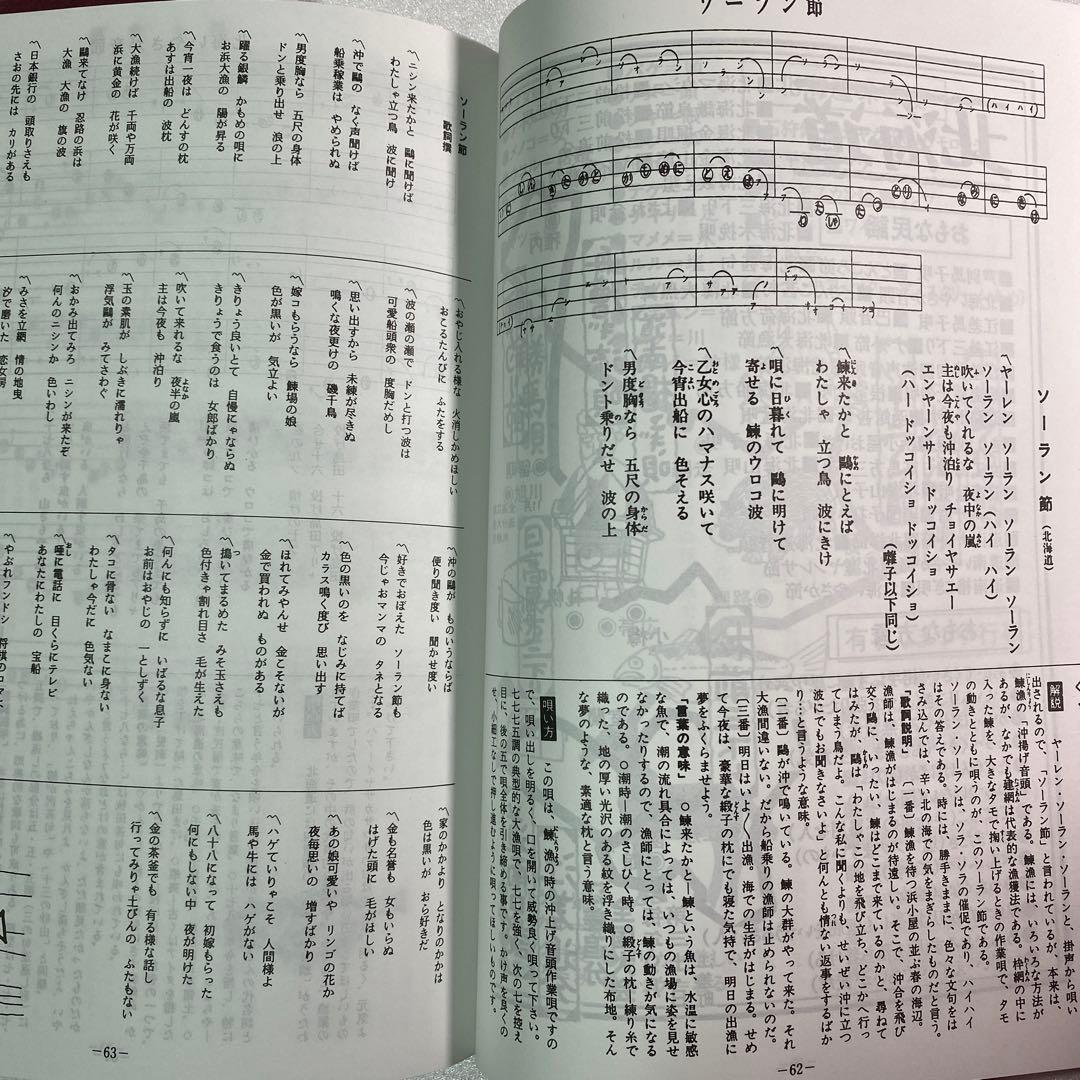 ソーラン節
ソーラン節（北海道）
〽ヤーレン ソーラン ソーラン ソーラン
ソーラン ソーラン（ハイ ハイ）
吹いてくれるな 夜中の嵐
主は今夜も沖泊り チョイヤサエー
エンヤーンサー ドッコイショ
（ハー ドッコイショ ドッコイショ）
（囃子以下同じ）
〽鰊来たかと 鷗にとえば
わたしゃ 立つ鳥 波にきけ
〽唄に日暮れて 鷗に明けて
寄せる 鰊のウロコ波
〽乙女心のハマナス咲いて
今宵出船に 色そえる
〽男度胸なら 五尺の身体
ドント乗りだせ 波の上
解説
ヤーレン・ソーランと、掛声から唄い
出されるので、「ソーラン節」と言われているが、本来は、
鰊漁の「沖揚げ音頭」である。鰊漁には、いろいろな方法が
あるが、なかでも建網は代表的な漁獲法である。枠網の中に
入った鰊を、大きなタモで掬い上げるときの作業唄で、タモ
の動きとともに唄うのが、このソーラン節である。
ソーラン・ソーランは、ソラ・ソラの催促であり、ハイハイ
はその答えである。時には、勝手きままに、色々な文句をは
さみ込んでは、辛い北の海での気をまぎらしたものだと言う。
「歌詞説明」（一番）鰊漁を待つ浜小屋の並ぶ春の海辺。
漁師は、鰊漁がはじまるのが待遠しい。そこで、沖合を飛び
交う鷗に、いったい、鰊はどこまで来ているのかと、尋ねて
はみたが、鷗は「わたしゃこの地を飛び立ち、どこかへ行っ
てしまう鳥だよ。こんな私に聞くよりも、せいぜい沖に立つ
波にでもお聞きなさいよ」と何んとも情ない返事をするばか
り…と言うような意味。
（二番）鷗が沖で鳴いている。鰊の大群がやって来た。それ
大漁間違いない。だから船乗りの漁師は止められないのだ。
（三番）明日はいよいよ出漁。海での生活がはじまる。せめ
て今夜は、豪華な緞子の枕にでも寝た気持で、明日の出漁に
夢をふくらませよう。
「言葉の意味」 ○鰊来たかと―鰊という魚は、水温に敏感
な魚で、潮の流れ具合によっては、いつもの漁場に姿を見せ
なかったりするので、漁師にとっては、鰊の動きが気になる
のである。○潮時―潮のさしひく時。○緞子の枕―練り糸で
織った、地の厚い光沢のある紋を浮き織りにした布地。そん
な夢のような、素適な枕と言う意味。
唄い方
この唄は、鰊漁の時の沖上げ音頭作業唄ですの
で、唄い出しを明るく、口を開いて威勢良く唄って下さい。
七七七五調の典型的な大漁唄で、七七を強く、次の七を控え
に、後の五で唄全体を引き締める事です。かけ声を良くの
せ、小細工なしで押し進むように唄ってほしいものです。
―62―
ソーラン節
歌詞撰
〽ニシン来たかと 鷗に聞けば
わたしゃ立つ鳥 波に聞け
〽沖で鷗の なく声聞けば
船乗稼業は やめられぬ
〽男度胸なら 五尺の身体
ドンと乗り出せ 浪の上
〽躍る銀鱗 かもめの唄に
お浜大漁の 陽が昇る
〽今宵一夜は どんすの枕
あすは出船の 波枕
〽大漁続けば 千両や万両
浜に黄金の 花が咲く
〽鷗来てなけ 忍路の浜は
大漁 大漁の 旗の波
〽日本銀行の 頭取りさえも
さおの先には カリがある
〽おやじ入れる様な 火消しかめほしい
おこるたんびに ふたをする
〽波の瀬の瀬で ドンと打つ波は
可愛船頭衆の 度胸だめし
〽思い出すから 未練が尽きぬ
鳴くな夜更けの 磯千鳥
〽嫁コもらうなら 鰊場の娘
色が黒いが 気立よい
〽きりょう良いとて 自慢にゃならぬ
きりょうで食うのは 女郎ばかり
〽吹いて来れるな 夜半の嵐
主は今夜も 沖泊り
〽玉の素肌が しぶきに濡れりゃ
浮気鷗が みてさわぐ
〽おかみ出てみろ ニシンが来たぞ
何んのニシンか 色いわし
〽みさを立網 情の地曳
汐で磨いた 恋女房
〽沖の鷗が ものいうならば
便り聞き度い 聞かせ度い
〽好きでおぼえた ソーラン節も
今じゃおマンマの タネとなる
〽色の黒いのを なじみに持てば
カラス鳴く度び 思い出す
〽ほれてみやんせ 金こそないが
金で買われぬ ものがある
〽搗いてまるめた みそ玉さえも
色付きゃ割れ目さ 毛が生えた
〽何んにも知らずに いばるな息子
お前はおやじの 一としずく
〽タコに骨ない なまこに身ない
わたしゃ今だに 色気ない
〽唖に電話に 目くらにテレビ
あなたにわたしの 宝船
〽やぶれフンドシ 将棋のコマよ
〽家のかかより となりのかかは
色は黒いが おら好きだ
〽金も名誉も 女もいらぬ
はげた頭に 毛がほしい
〽あの娘可愛いや リンゴの花か
夜毎思いの 増すばかり
〽ハゲていりゃこそ 人間様よ
馬や牛には ハゲがない
〽八十八になって 初嫁もらった
何にもしない中 夜が明けた
〽金の茶釜でも 有る様な話し
行ってみりゃ土びんの ふたもない
―63―